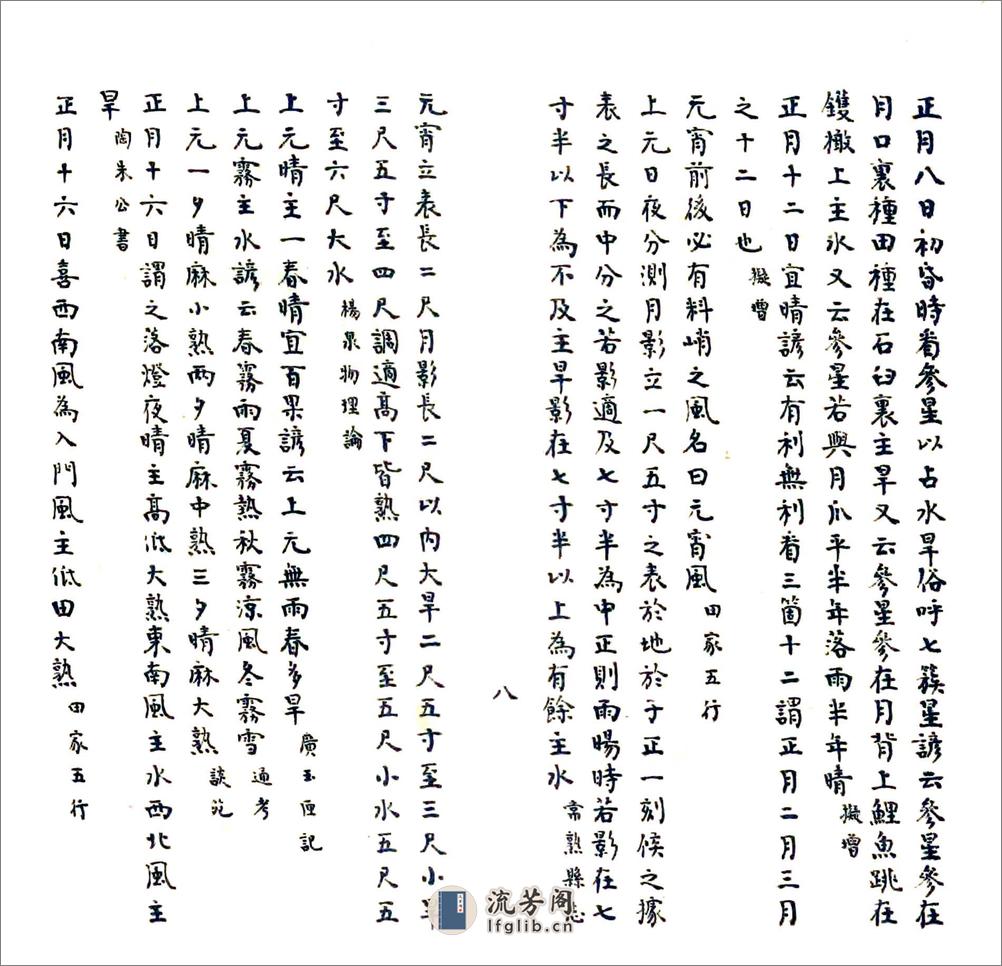 正月八日初昏時看參星以占水旱俗呼七簇星諺云參星參在
月口裏種田種在石臼裏主旱又云參星參在月背上鯉魚跳在
鑊橵上主水又云參星若與月爪平半年落雨半年晴擬增
正月十二日宜晴諺云有利無利看三箇十二謂正月二月三月
之十二日也擬增
元宵前後必有料峭之風名曰元宵風田家五行
上元日夜分測月影立一尺五寸之表於地於子正一刻候之據
表之長而中分之若影適及七寸半為中正則雨暘時若影在七
寸半以下為不及主旱影在七寸半以上為有餘主水常熟縣志
八
元宵立表長二尺月影長二尺以內大旱二尺五寸至三尺小旱
三尺五寸至四尺調適高下皆熟四尺五寸至五尺小水五尺五
寸至六尺大水楊泉物理論
上元晴主一春晴宜百果諺云上元無雨春多旱廣玉匣記
上元霧主水諺云春霧雨夏霧熱秋霧涼風冬霧雪通考
上元一夕晴麻小熟兩夕晴麻中熟三夕晴麻大熟談苑
正月十六日謂之落燈夜晴主高低大熟東南風主水西北風主
旱陶朱公書
正月十六日喜西南風為入門風主低田大熟田家五行
流芳阁
lfglib.cn